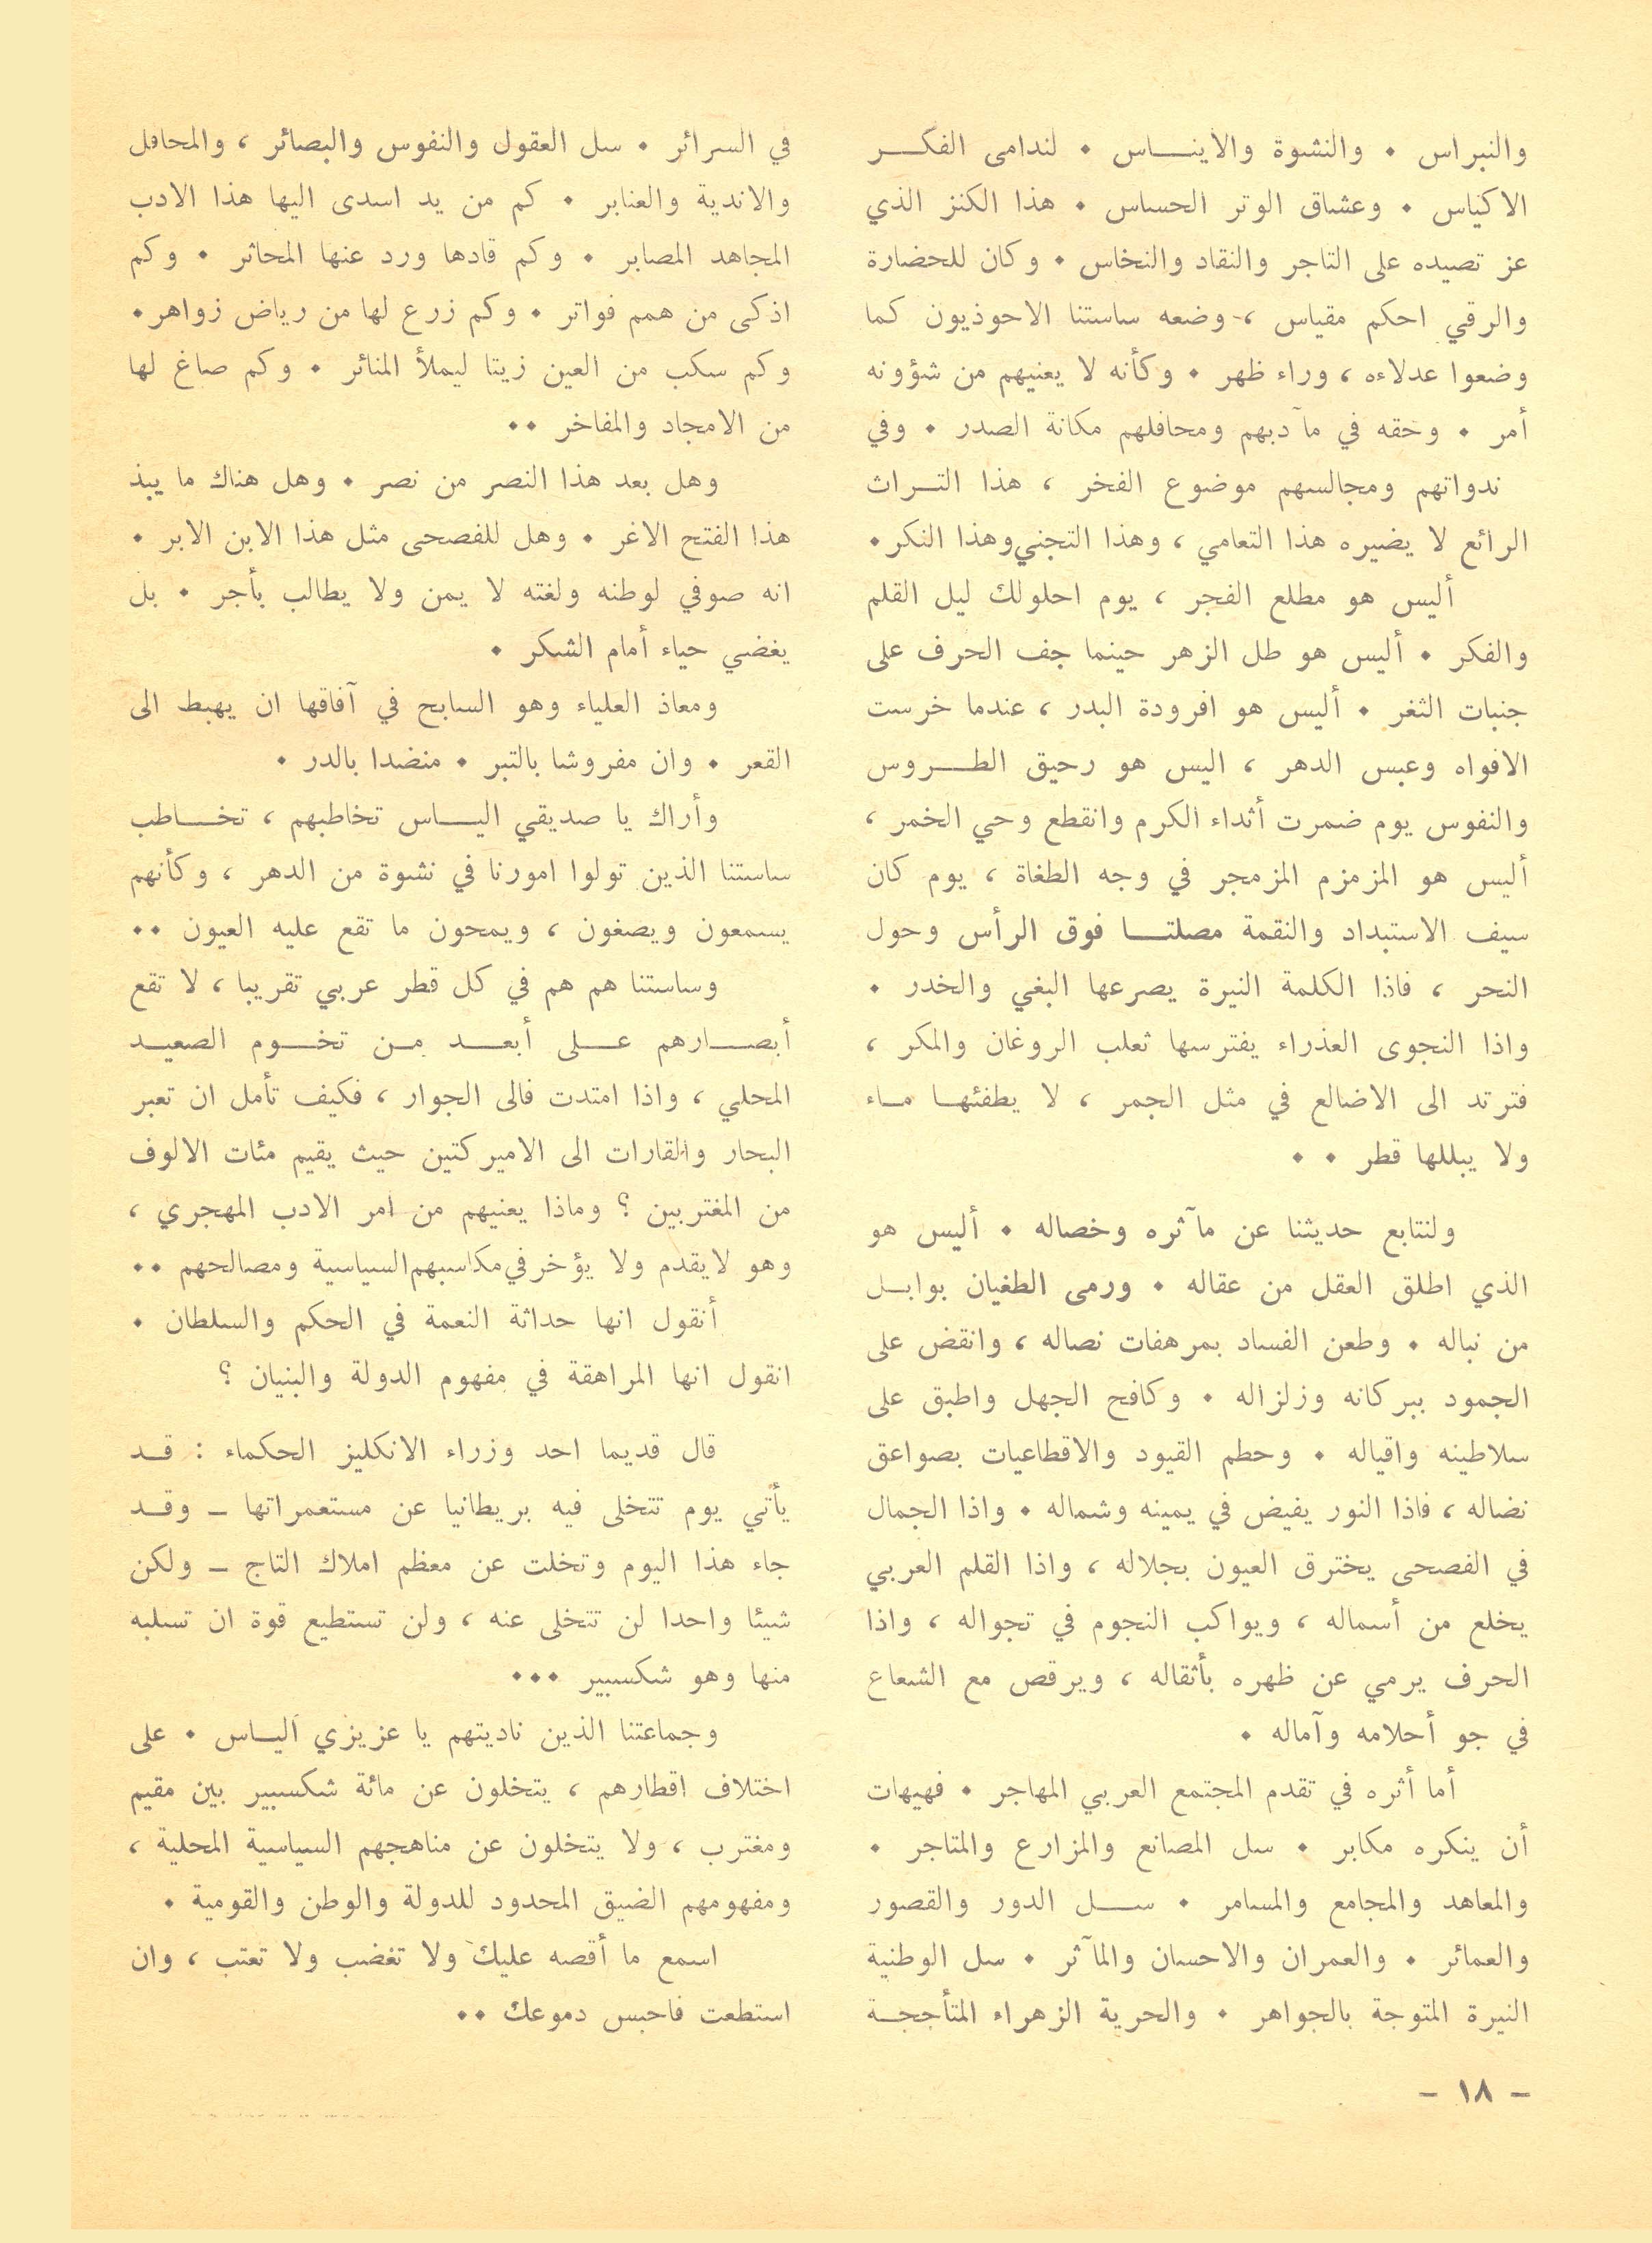 والنبراس • والنشوة والايناس • لندامى الفكر
الاكياس • وعشاق الوتر الحساس • هذا الكنز الذي
عز تصيده على التاجر والنقاد والنخاس • وكان للحضارة
والرقي احكم مقياس ، وضعه ساستنا الاحوذيون كما
وضعوا عدلاءه ، وراء ظهر • وكأنه لا يعنيهم من شؤونه
أمر • وحقه في مآدبهم ومحافلهم مكانة الصدر • وفي
ندواتهم ومجالسهم موضوع الفخر ، هذا التراث
الرائع لا يضيره هذا التعامي ، وهذا التجني وهذا النكر •
أليس هو مطلع الفجر ، يوم احلولك ليل القلم
والفكر • أليس هو طل الزهر حينما جف الحرف على
جنبات الثغر • أليس هو افرودة البدر ، عندما خرست
الافواه وعبس الدهر ، اليس هو رحيق الطروس
والنفوس يوم ضمرت أثداء الكرم وانقطع وحي الخمر ،
أليس هو المزمزم المزمجر في وجه الطغاة ، يوم كان
سيف الاستبداد والنقمة مصلتا فوق الرأس وحول
النحر ، فاذا الكلمة النيرة يصرعها البغي والخدر •
واذا النجوى العذراء يفترسها ثعلب الروغان والمكر ،
فترتد الى الاضالع في مثل الجمر ، لا يطفئها ماء
ولا يبللها قطر • •
ولنتابع حديثنا عن مآثره وخصاله • أليس هو
الذي اطلق العقل من عقاله • ورمى الطغيان بوابل
من نباله • وطعن الفساد بمرهفات نصاله ، وانقض على
الجمود ببركانه وزلزاله • وكافح الجهل واطبق على
سلاطينه واقياله • وحطم القيود والاقطاعيات بصواعق
نضاله ، فاذا النور يفيض في يمينه وشماله • واذا الجمال
في الفصحى يخترق العيون بجلاله ، واذا القلم العربي
يخلع من أسماله ، ويواكب النجوم في تجواله ، واذا
الحرف يرمي عن ظهره بأثقاله ، ويرقص مع الشعاع
في جو أحلامه وآماله •
أما أثره في تقدم المجتمع العربي المهاجر • فهيهات
أن ينكره مكابر • سل المصانع والمزارع والمتاجر •
والمعاهد والمجامع والمسامر • سل الدور والقصور
والعمائر • والعمران والاحسان والمآثر • سل الوطنية
النيرة المتوجة بالجواهر • والحرية الزهراء المتأججة
في السرائر • سل العقول والنفوس والبصائر ، والمحافل
والاندية والعنابر • كم من يد اسدى اليها هذا الادب
المجاهد المصابر • وكم قادها ورد عنها المحاثر • وكم
اذكى من همم فواتر • وكم زرع لها من رياض زواهر •
وكم سكب من العين زيتا ليملأ المنائر • وكم صاغ لها
من الامجاد والمفاخر ••
وهل بعد هذا النصر من نصر • وهل هناك ما يبذ
هذا الفتح الاغر • وهل للفصحى مثل هذا الابن الابر •
انه صوفي لوطنه ولغته لا يمن ولا يطالب بأجر • بل
يغضي حياء أمام الشكر •
ومعاذ العلياء وهو السابح في آفاقها ان يهبط الى
القعر • وان مفروشا بالتبر • منضدا بالدر •
وأراك يا صديقي الياس تخاطبهم ، تخاطب
ساستنا الذين تولوا امورنا في نشوة من الدهر ، وكأنهم
يسمعون ويصغون ، ويمحون ما تقع عليه العيون ••
وساستنا هم هم في كل قطر عربي تقريبا ، لا تقع
أبصارهم على أبعد من تخوم الصعيد
المحلي ، واذا امتدت فالى الجوار ، فكيف تأمل ان تعبر
البحار والقارات الى الاميركتين حيث يقيم مئات الالوف
من المغتربين ؟ وماذا يعنيهم من امر الادب المهجري ،
وهو لايقدم ولا يؤخر في مكاسبهم السياسية ومصالحهم ••
أنقول انها حداثة النعمة في الحكم والسلطان •
انقول انها المراهقة في مفهوم الدولة والبنيان ؟
قال قديما احد وزراء الانكليز الحكماء : قد
يأتي يوم تتخلى فيه بريطانيا عن مستعمراتها – وقد
جاء هذا اليوم وتخلت عن معظم املاك التاج – ولكن
شيئا واحدا لن تتخلى عنه ، ولن تستطيع قوة ان تسلبه
منها وهو شكسبير •••
وجماعتنا الذين ناديتهم يا عزيزي الياس • على
اختلاف اقطارهم ، يتخلون عن مائة شكسبير بين مقيم
ومغترب ، ولا يتخلون عن مناهجهم السياسية المحلية ،
ومفهومهم الضيق المحدود للدولة والوطن والقومية •
اسمع ما أقصه عليك ولا تغضب ولا تعتب ، وان
استطعت فاحبس دموعك ••
– ١٨ –